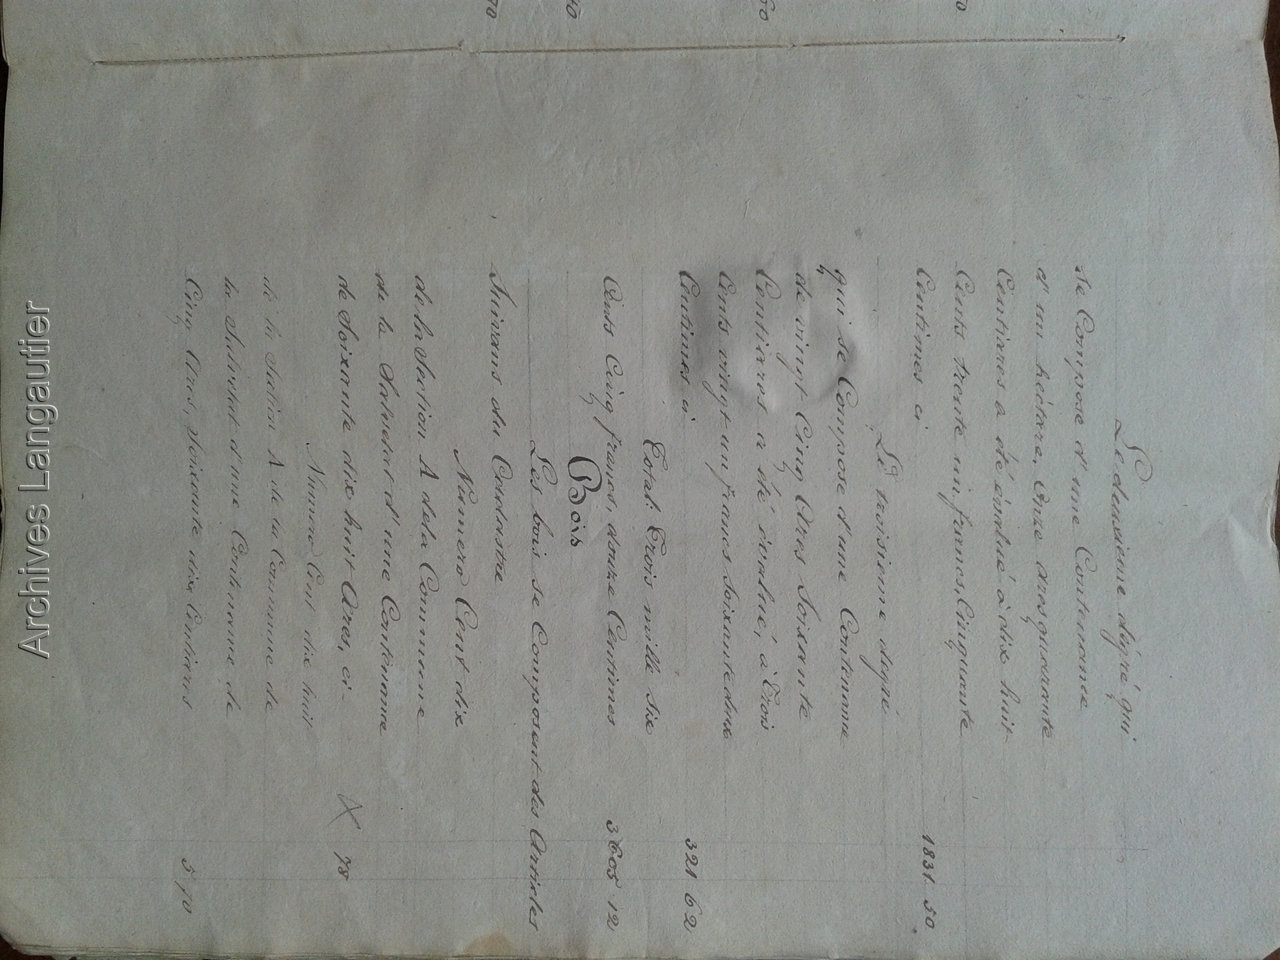 Le deuxième dégré qui
se Compose d'une Contenance
d'un hectare, Onze ares quarante
Centiares a été évalué à dix huit
Cents trente un francs, Cinquante
Centimes ci 1831 50
Le troisieme dégré
qui se Compose d'une Contenance
de vingt Cinq Ares Soixante
Centiares a été évalué, à Trois
Cents vingt un francs Soixante deux
Centimes ci 321 62
Total: Trois mille Six
Cents Cinq francs, douze Centimes 3605 12
Bois
Les bois se Composent des Articles
Suivans du Cadastre
Numero Cent dix
de la Section A de la Commune
de la Salvetat d'une Contenance
de Soixante dix huit Ares, ci 78
Numero Cent dix huit
de la Section A de la Commune de
la Salvetat d'une Contenance de
Cinq Ares, Soixante dix Centiares 5 70
Archives Langautier